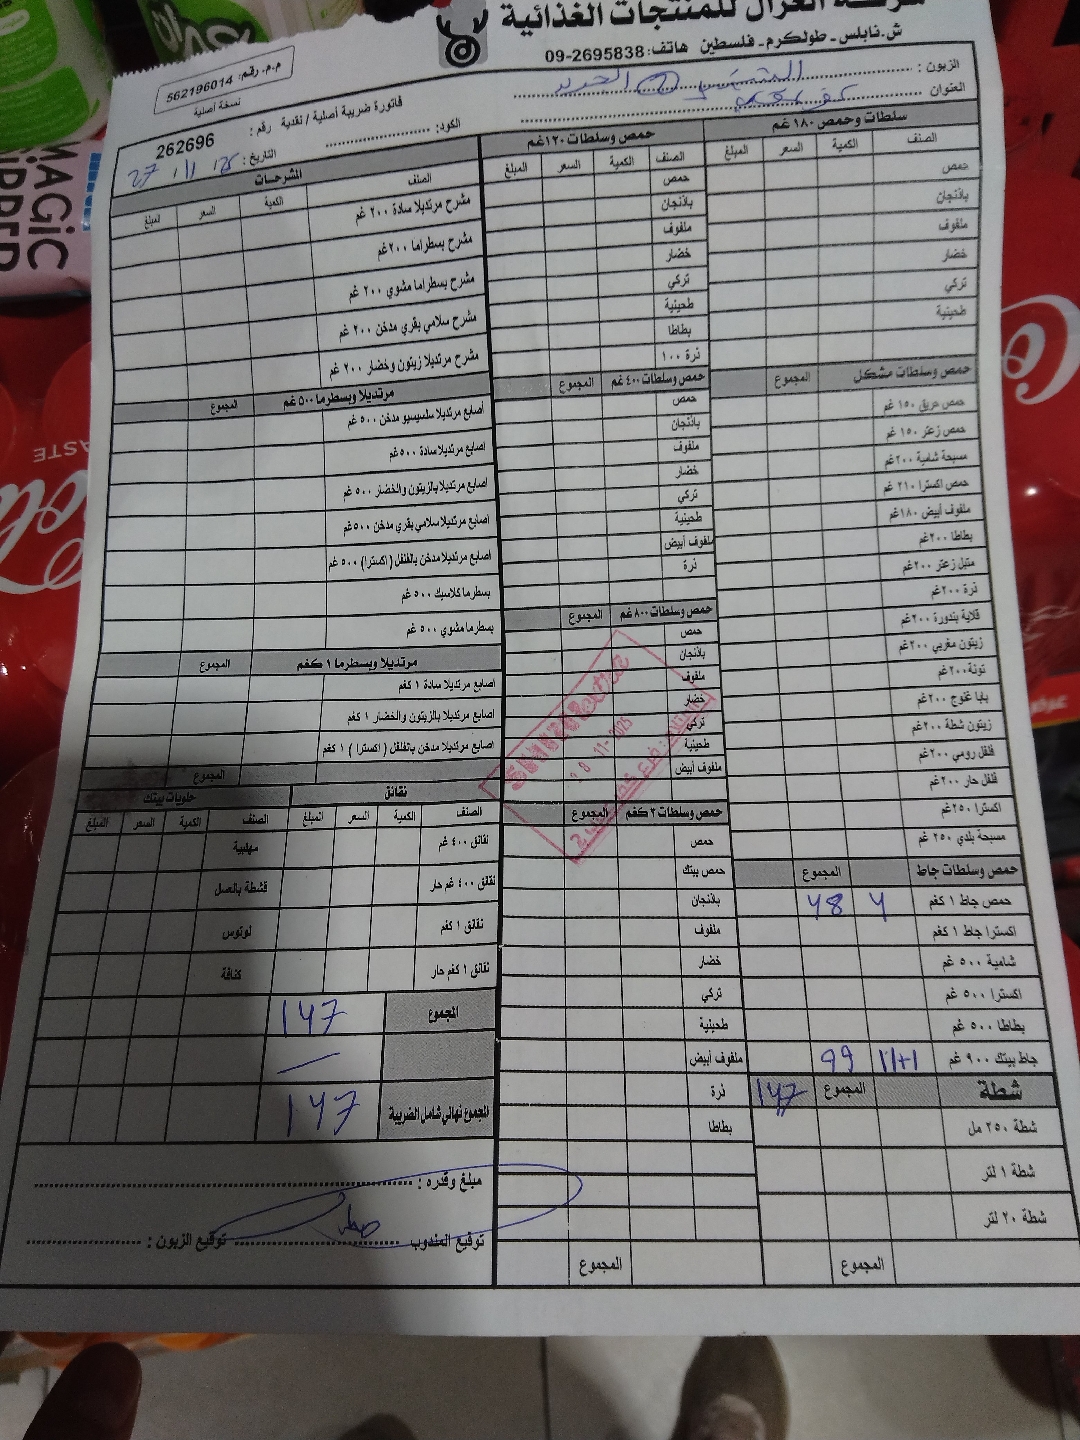 شركة الغزال للمنتجات الغذائية
ش.نابلس - طولكرم - فلسطين هاتف: 09-2695838
م.م. رقم: 562196014
نسخة أصلية
فاتورة ضريبة أصلية / نقدية رقم: 262696
الزبون:
العنوان:
الكود:
التاريخ: 27 / 11 / 25
سلطات وحمص ١٨٠ غم
الصنف الكمية السعر المبلغ
حمص
باذنجان
ملفوف
خضار
تركي
طحينية
حمص وسلطات مشكل المجموع
حمص حريق ١٥٠ غم
حمص زعتر ١٥٠ غم
مسبحة شامية ٢٠٠غم
حمص اكسترا ٢١٠ غم
ملفوف أبيض ١٨٠غم
بطاطا ٢٠٠غم
متبل زعتر ٢٠٠غم
ذرة ٢٠٠غم
قلاية بندورة ٢٠٠غم
زيتون مغربي ٢٠٠غم
تونة٢٠٠غم
بابا غنوج ٢٠٠غم
زيتون شطة ٢٠٠غم
فلفل رومي ٢٠٠غم
فلفل حار ٢٠٠غم
اكسترا ٢٥٠غم
مسبحة بلدي ٢٥٠ غم
حمص وسلطات جاط المجموع
حمص جاط ١ كغم 4 48
اكسترا جاط ١ كغم
شامية ٥٠٠ غم
اكسترا ٥٠٠ غم
بطاطا ٥٠٠ غم
جاط بيتك ٩٠٠ غم 11+1 99
شطة المجموع 147
شطة ٢٥٠ مل
شطة ١ لتر
شطة ٢٠ لتر
المجموع
حمص وسلطات ١٢٠غم
الصنف الكمية السعر المبلغ
حمص
باذنجان
ملفوف
خضار
تركي
طحينية
بطاطا
ذرة ١٠٠
حمص وسلطات ٤٠٠غم المجموع
حمص
باذنجان
ملفوف
خضار
تركي
طحينية
ملفوف أبيض
ذرة
حمص وسلطات ٨٠٠غم المجموع
حمص
باذنجان
ملفوف
خضار
تركي
طحينية
ملفوف أبيض
حمص وسلطات ٣ كغم المجموع
حمص
حمص بيتك
باذنجان
ملفوف
خضار
تركي
طحينية
ملفوف أبيض
ذرة
بطاطا
المجموع
المشرحات
الصنف الكمية السعر المبلغ
مشرح مرتديلا سادة ٢٠٠ غم
مشرح بسطراما ٢٠٠غم
مشرح بسطراما مشوي ٢٠٠ غم
مشرح سلامي بقري مدخن ٢٠٠ غم
مشرح مرتديلا زيتون وخضار ٢٠٠ غم
مرتديلا وبسطرما ٥٠٠ غم المجموع
اصابع مرتديلا سلسيسيو مدخن ٥٠٠ غم
اصابع مرتديلا سادة ٥٠٠غم
اصابع مرتديلا بالزيتون والخضار ٥٠٠ غم
اصابع مرتديلا سلامي بقري مدخن ٥٠٠غم
اصابع مرتديلا مدخن بالفلفل ( اكسترا ) ٥٠٠ غم
بسطرما كلاسيك ٥٠٠ غم
بسطرما مشوي ٥٠٠ غم
مرتديلا وبسطرما ١ كغم المجموع
اصابع مرتديلا سادة ١ كغم
اصابع مرتديلا بالزيتون والخضار ١ كغم
اصابع مرتديلا مدخن بالفلفل ( اكسترا ) ١ كغم
المجموع
نقانق
الصنف الكمية السعر المبلغ
نقانق ٤٠٠ غم
نقانق ٤٠٠ غم حار
نقانق ١ كغم
نقانق ١ كغم حار
حلويات بيتك
الصنف الكمية السعر المبلغ
مهلبية
قشطة بالعسل
لوتوس
كنافة
المجموع 147
المجموع نهائي شامل الضريبة 147
مبلغ وقدره:
توقيع المندوب
توقيع الزبون:
MAGIC